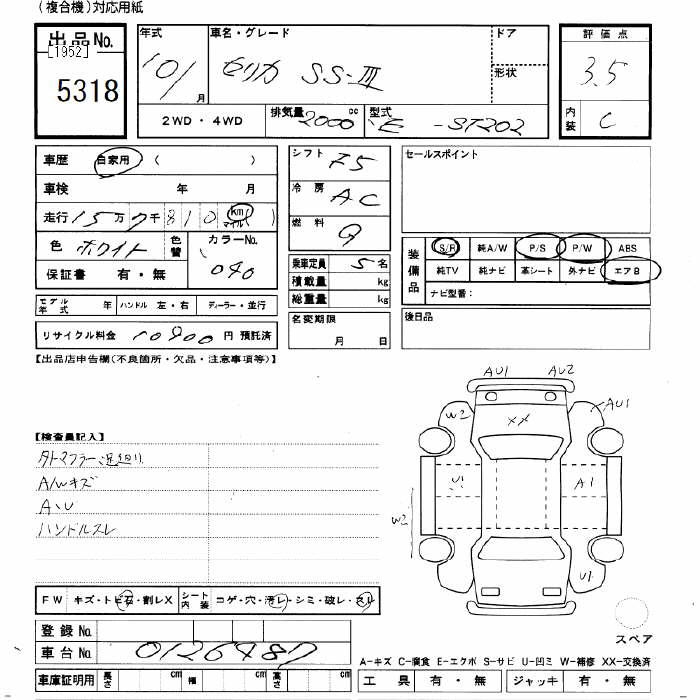 (複合機)対応用紙
出品No.
[1952]
5318
年式
10/
月
車名・グレード
セリカ SS-Ⅲ
ドア
形状
評価点
3.5
内装
C
2WD・4WD
排気量
2000
cc
型式
E-ST202
車歴 自家用 ( )
車検 年 月
走行 15万 7千 810 (km マイル)
色 ホワイト 色替
カラーNo.
040
保証書 有・無
モデル年式 年 ハンドル 左・右 ディーラー・並行
リサイクル料金 10900 円 預託済
シフト F5
冷房 AC
燃料 G
乗車定員 5 名
積載量 kg
総重量 kg
名変期限
月 日
セールスポイント
装備品
S/R 純A/W P/S P/W ABS
純TV 純ナビ 革シート 外ナビ エアB
ナビ型番:
後日品
【出品店申告欄(不良箇所・欠品・注意事項等)】
【検査員記入】
タトマフラー 足廻り
A/Wキズ
A、U
ハンドルスレ
FW キズ・トビ石・割レX シート内装 コゲ・穴・汚レ・シミ・破レ・スレ
登録No.
車台No. 0126487
車庫証明用 長さ cm 幅 cm 高さ cm
AU1 AU2
W2 XX AU1
U1 A1
W2
U1
スペア
A-キズ C-腐食 E-エクボ S-サビ U-凹ミ W-補修 XX-交換済
工具 有・無 ジャッキ 有・無